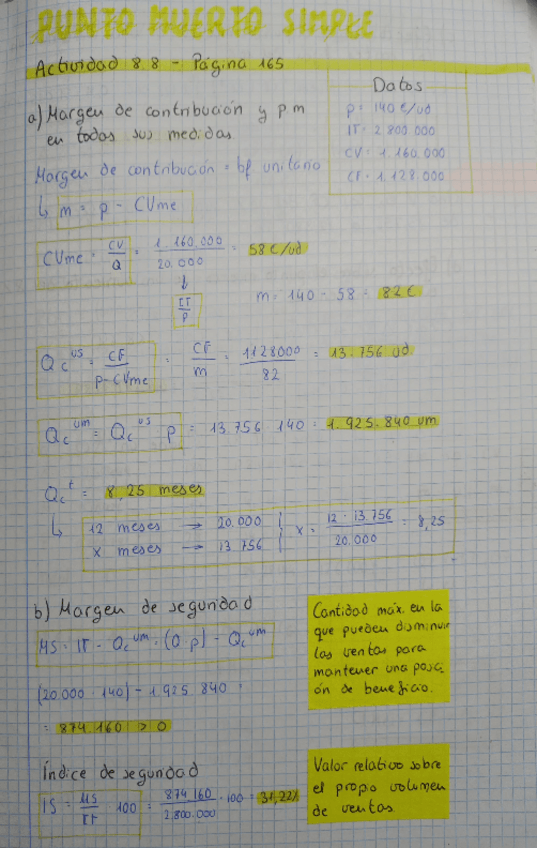 PUNTO MUERTO SIMPLE
Actividad 8.8 - Página 165
a) Margen de contribución y p.m
en todas sus medidas.
Datos
p = 140 €/ud
IT = 2.800.000
CV = 1.160.000
CF = 1.128.000
Margen de contribución = bf unitario
↳ m = p - CVme
CVme = CV/Q = 1.160.000/20.000 = 58 €/ud
↓
IT/P
m = 140 - 58 = 82 €
Qc^us = CF/(p-CVme) = CF/m = 1128000/82 = 13.756 ud
Qc^um = Qc^us · p = 13.756 · 140 = 1.925.840 um
Qc^t = 8,25 meses
↳ 12 meses → 20.000
x meses → 13.756
x = 12 · 13.756/20.000 = 8,25
b) Margen de seguridad
MS = IT - Qc^um = (Q · p) - Qc^um
(20.000 · 140) - 1.925.840 =
= 874.160 > 0
Cantidad máx. en la
que pueden disminuir
las ventas para
mantener una posici
ón de beneficio.
Índice de seguridad
IS = MS/IT · 100 = 874.160/2.800.000 · 100 = 31,22%
Valor relativo sobre
el propio volumen
de ventas